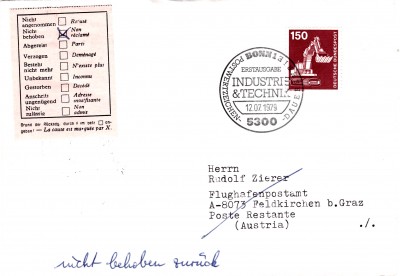 Nicht angenommen Refusé
Nicht behoben Non réclamé
Abgereist Parti
Verzogen Déménagé
Besteht nicht mehr N'existe plus
Unbekannt Inconnu
Gestorben Décédé
Anschrift ungenügend Adresse insuffisante
Nicht zulässig Non admis
— La cause est marquée par X.
150
DEUTSCHE BUNDESPOST
BONN 1
ERSTAUSGABE
INDUSTRIE
& TECHNIK
12.07.1979
5300
POSTWERTZEICHEN
Herrn
Rudolf Zierer
Flughafenpostamt
A-8073 Feldkirchen b.Graz
Poste Restante
(Austria) ./.
nicht behoben zurück